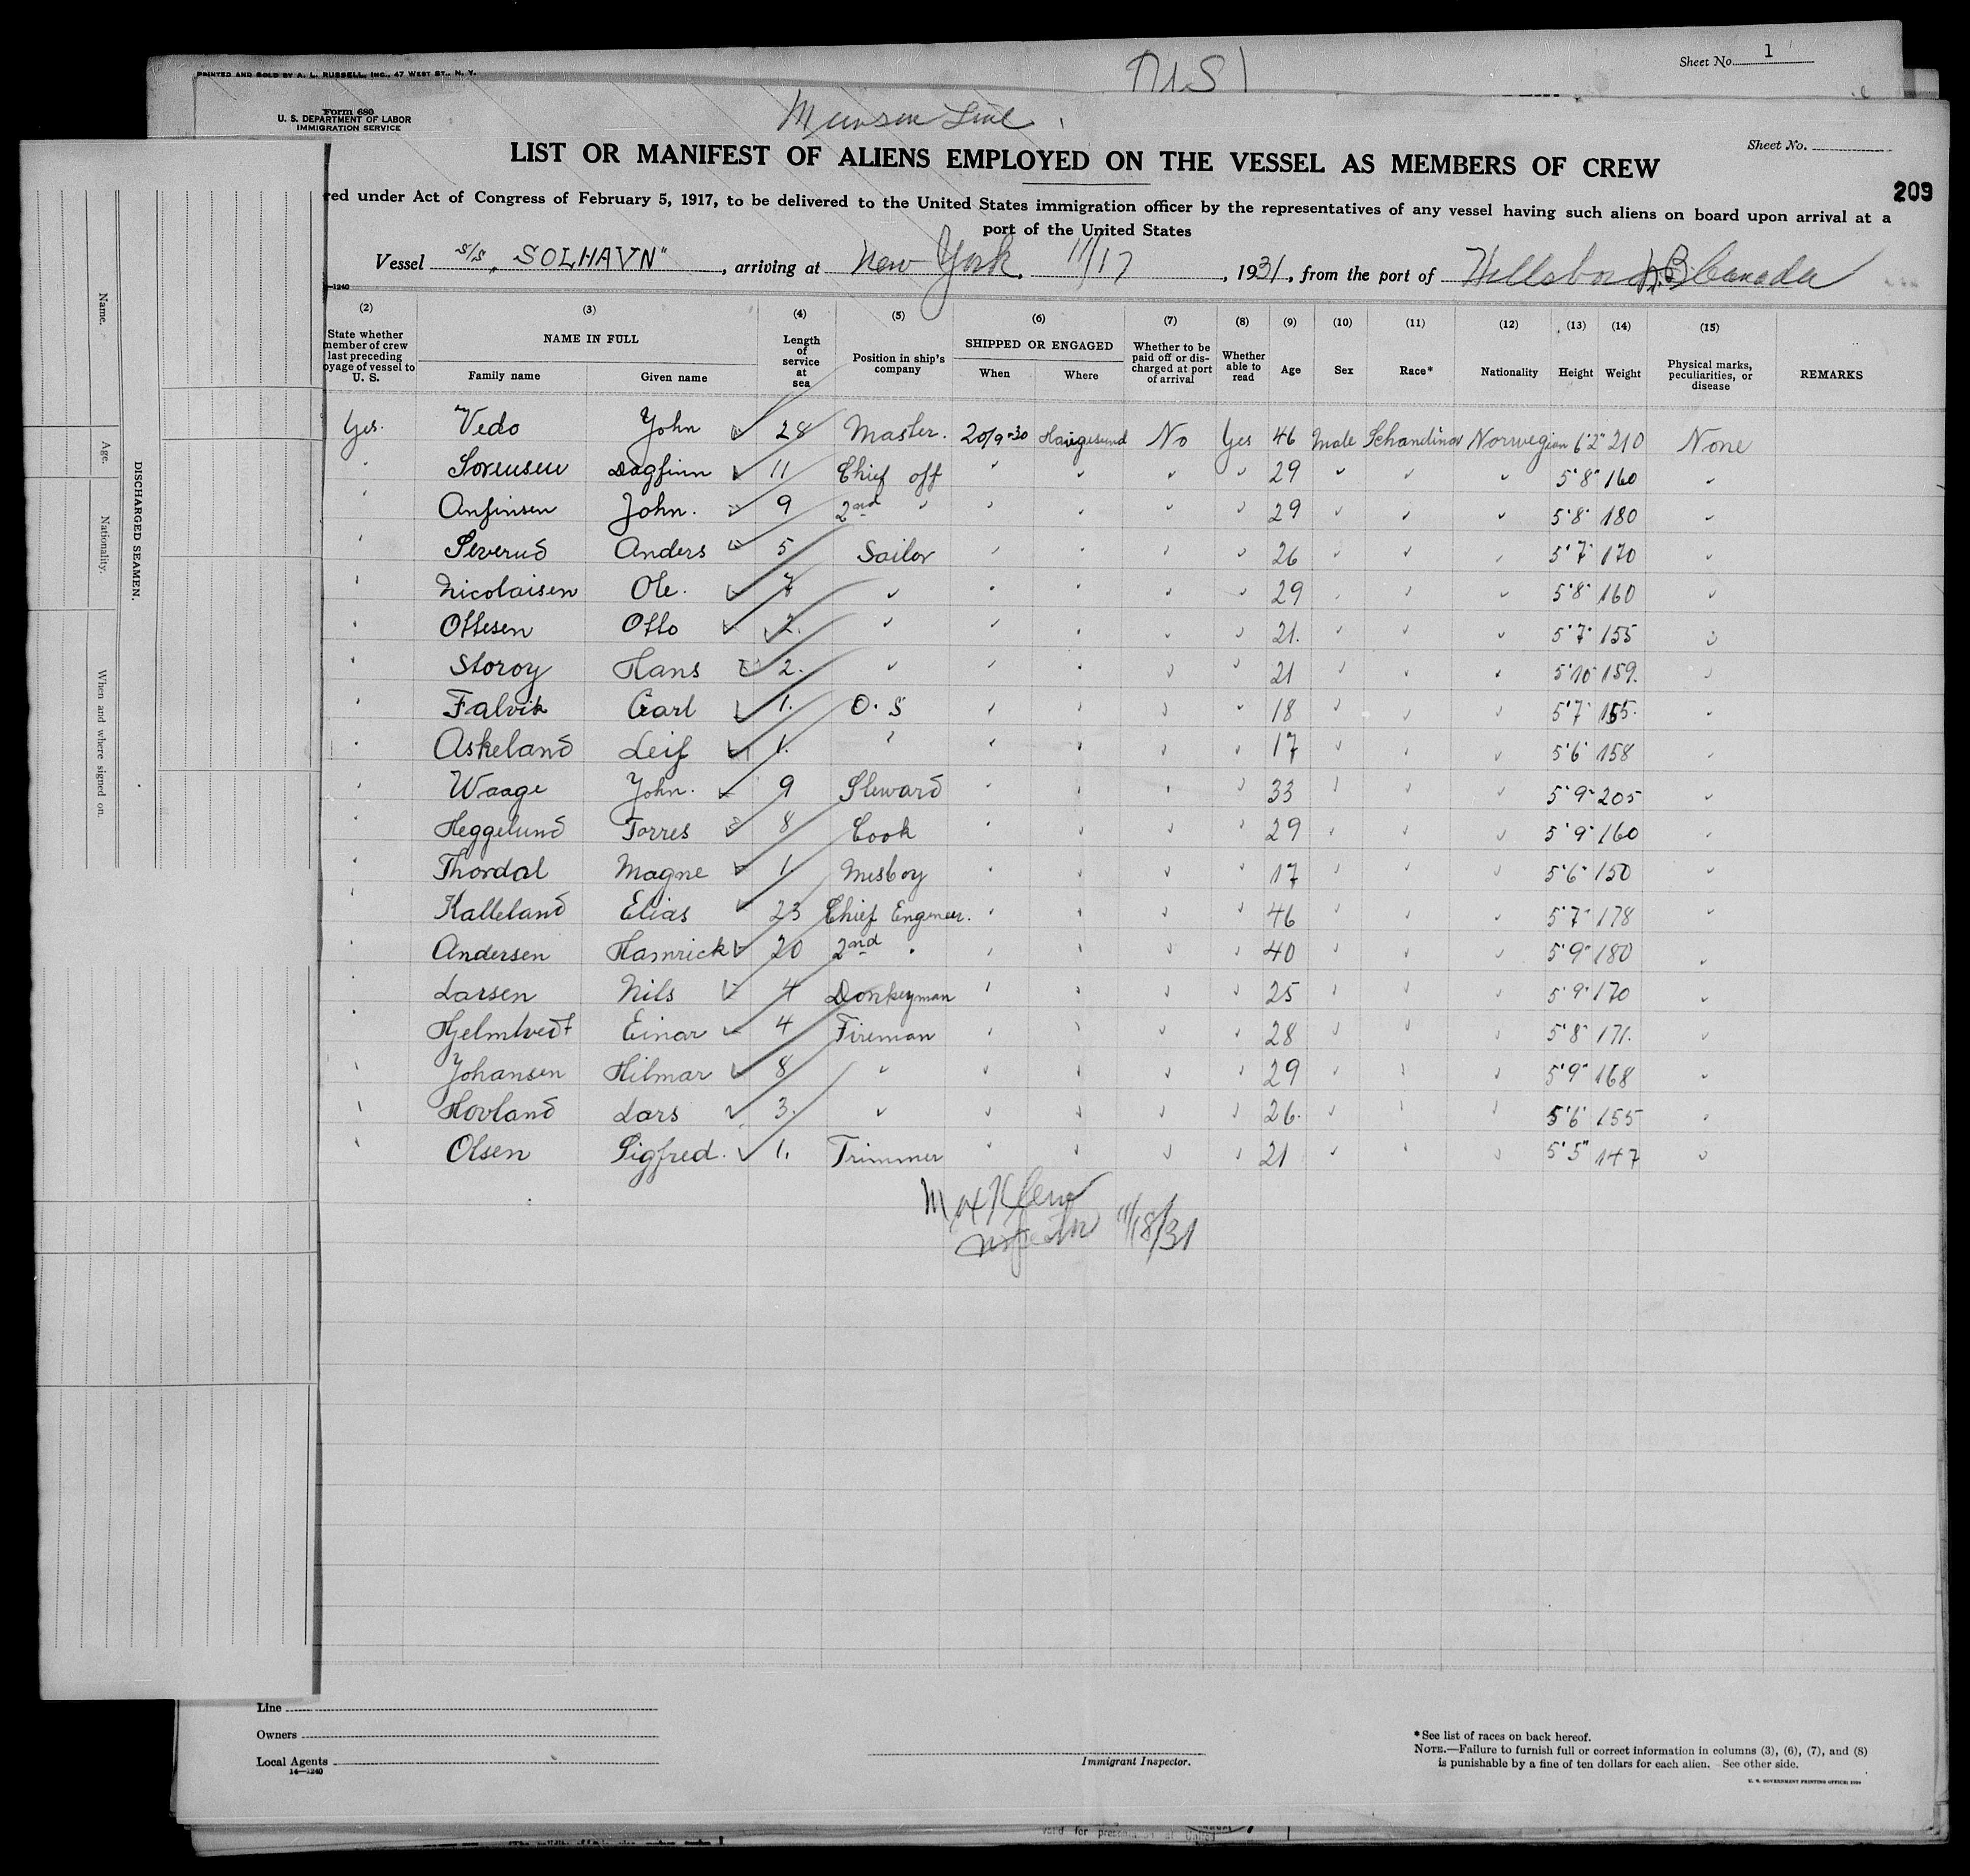 PRINTED AND SOLD BY A. L. RUSSELL, INC., 47 WEST ST., N. Y.
Sheet No. 1
Form 680
U. S. DEPARTMENT OF LABOR
IMMIGRATION SERVICE
Munson Line
Sheet No.
LIST OR MANIFEST OF ALIENS EMPLOYED ON THE VESSEL AS MEMBERS OF CREW
209
red under Act of Congress of February 5, 1917, to be delivered to the United States immigration officer by the representatives of any vessel having such aliens on board upon arrival at a
port of the United States
Vessel S/S "SOLHAVN", arriving at New York. 11/17, 1931, from the port of Hillsboro N.B. Canada
—1240
(2) (3) (4) (5) (6) (7) (8) (9) (10) (11) (12) (13) (14) (15)
State whether member of crew last preceding oyage of vessel to U. S.
NAME IN FULL
Family name Given name
Length of service at sea
Position in ship's company
SHIPPED OR ENGAGED
When Where
Whether to be paid off or discharged at port of arrival
Whether able to read
Age Sex Race* Nationality Height Weight
Physical marks, peculiarities, or disease
REMARKS
Yes. Vedo John 28 Master. 20/9-30 Haugesund No Yes 46 Male Schandinav Norwegian 6'2" 210 None
" Sorensen Dagfinn 11 Chief off " " " " 29 " " " 5'8" 160 "
" Anfinsen John. 9 2nd " " " " " 29 " " " 5'8" 180 "
" Severud Anders 5 Sailor " " " " 26 " " " 5'7" 170 "
" Nicolaisen Ole. 7 " " " " " 29 " " " 5'8" 160 "
" Ottesen Otto 2. " " " " " 21. " " " 5'7" 155 "
" Storoy Hans 2. " " " " " 21 " " " 5'10" 159. "
" Falvik Carl 1. O. S " " " " 18 " " " 5'7" 155. "
" Askeland Leif 1. " " " " " 17 " " " 5'6" 158 "
" Waage John. 9 Steward " " " " 33 " " " 5'9" 205 "
" Heggelund Torres 8 Cook " " " " 29 " " " 5'9" 160 "
" Thordal Magne 1. Mesboy " " " " 17 " " " 5'6" 150 "
" Kalleland Elias 23 Chief Engeneer. " " " " 46 " " " 5'7" 178 "
" Andersen Hamrick 20 2nd " " " " " 40 " " " 5'9" 180 "
" Larsen Nils 4 Donkeyman " " " " 25 " " " 5'9" 170 "
" Hjelmtvedt Einar 4 Fireman " " " " 28 " " " 5'8" 171. "
" Johansen Hilmar 8 " " " " " 29 " " " 5'9" 168 "
" Hovland Lars 3. " " " " " 26. " " " 5'6" 155 "
" Olsen Sigfred. 1. Trimmer " " " " 21 " " " 5'5" 147 "
Inspector 11/18/31
Name.
Age.
Nationality.
When and where signed on.
DISCHARGED SEAMEN.
Line
Owners
Local Agents
14—1240
Immigrant Inspector.
*See list of races on back hereof.
NOTE.—Failure to furnish full or correct information in columns (3), (6), (7), and (8)
is punishable by a fine of ten dollars for each alien. See other side.